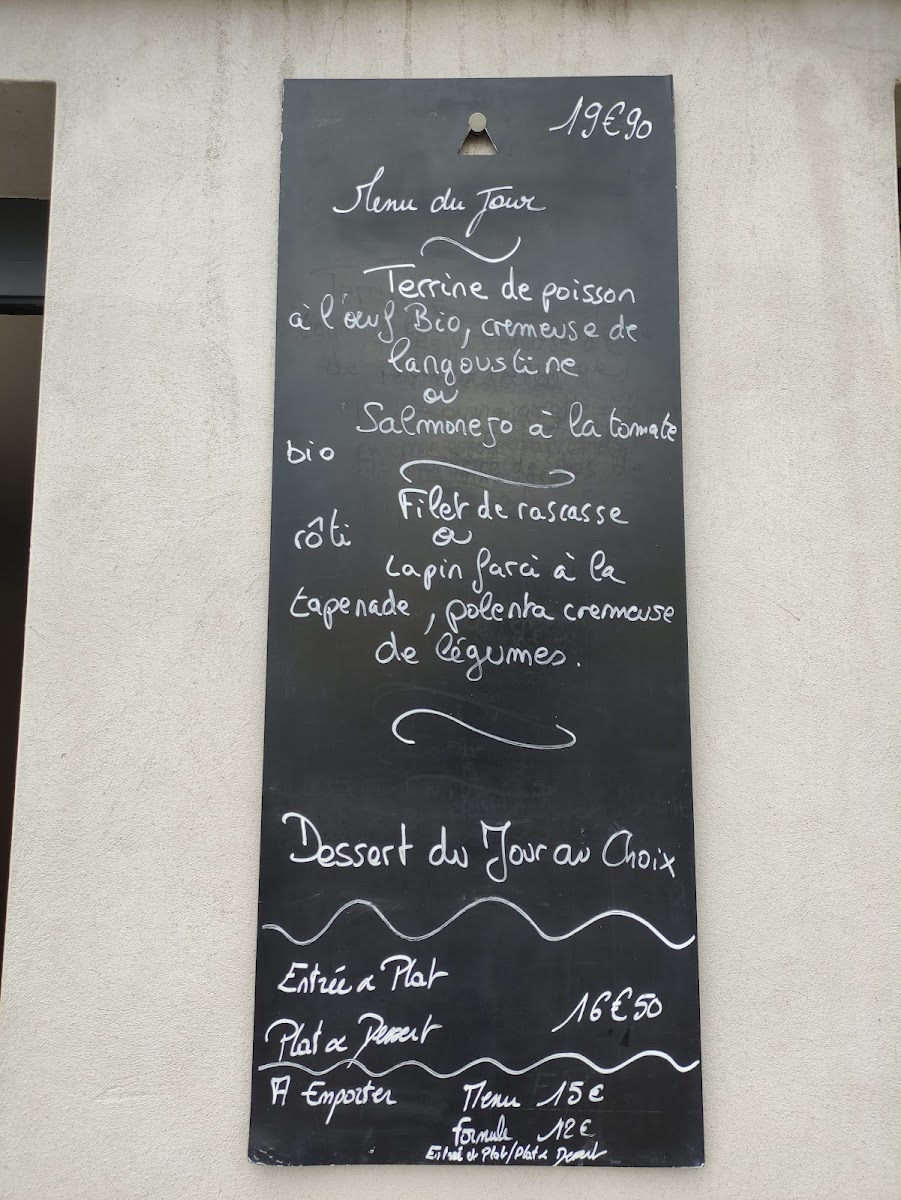 19€90
Menu du Jour
Terrine de poisson
à l'œuf Bio, cremeuse de
langoustine
ou
Salmorejo à la tomate
bio
Filet de rascasse
rôti ou
Lapin farci à la
tapenade, polenta cremeuse
de légumes.
Dessert du Jour au Choix
Entrée & Plat
16€50
Plat & Dessert
A Emporter Menu 15€
formule 12€
Entrée & Plat/Plat & Dessert